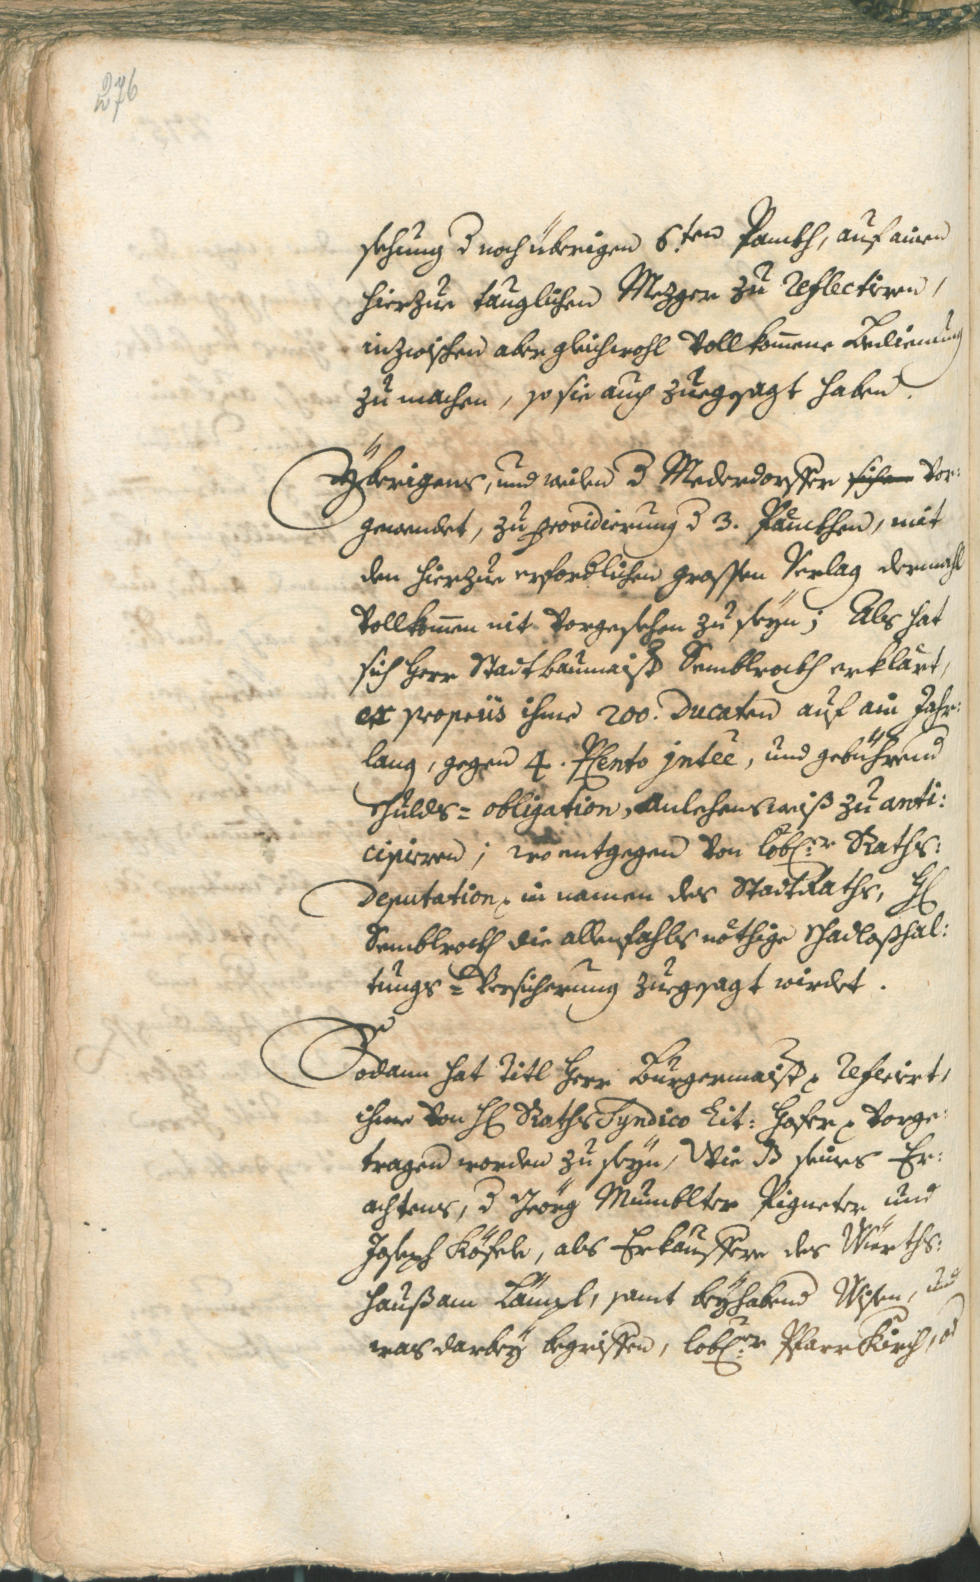 276
sehung d noch übrigen 6.ten Panckh, auf ainen
hierzue tauglichen Mezger zu reflectiren,
inzwischen aber gleichwohl vollkommene Bedienung
zu machen, so sie auch zuegesagt haben.
Übrigens, und weilen d Mederdorffer vor:
gewendet, zu providierung d 3. Pänckhen, mit
den hierzue erfordlichen grossen Verlag dermahl
vollkommen nit vorgesehen zu seyn; Als hat
sich Herr Stadtbaumaistr Semblrockh erklärt,
ex propriis ihme 200. Ducaten auf ain Jahr:
lang, gegen 4. PCento jntee, und gebührend
Schulds= obligation, Anlehensweiß zu anti:
cipiren; wo entgegen von lobl:r Raths:
Deputation in namen des StadtRaths, H
Semblrockh die allenfahls nöthige schadloßhal:
tungs= Versicherung zuegesagt wirdet.
Sodann hat Titl Herr Burgermaistr referirt,
ihme von H Raths Syndico Lit: Hofer vorge:
tragen worden zu seyn, Wie dß seines Er:
achtens, d Georg Mumblter Pigneter und
Joseph Köfele, als Erkäuffere des Würths:
hauß am Lämpl, samt beyhabend Wisen, und
was darbey begriffen, lobl:r PfarrKirch, od